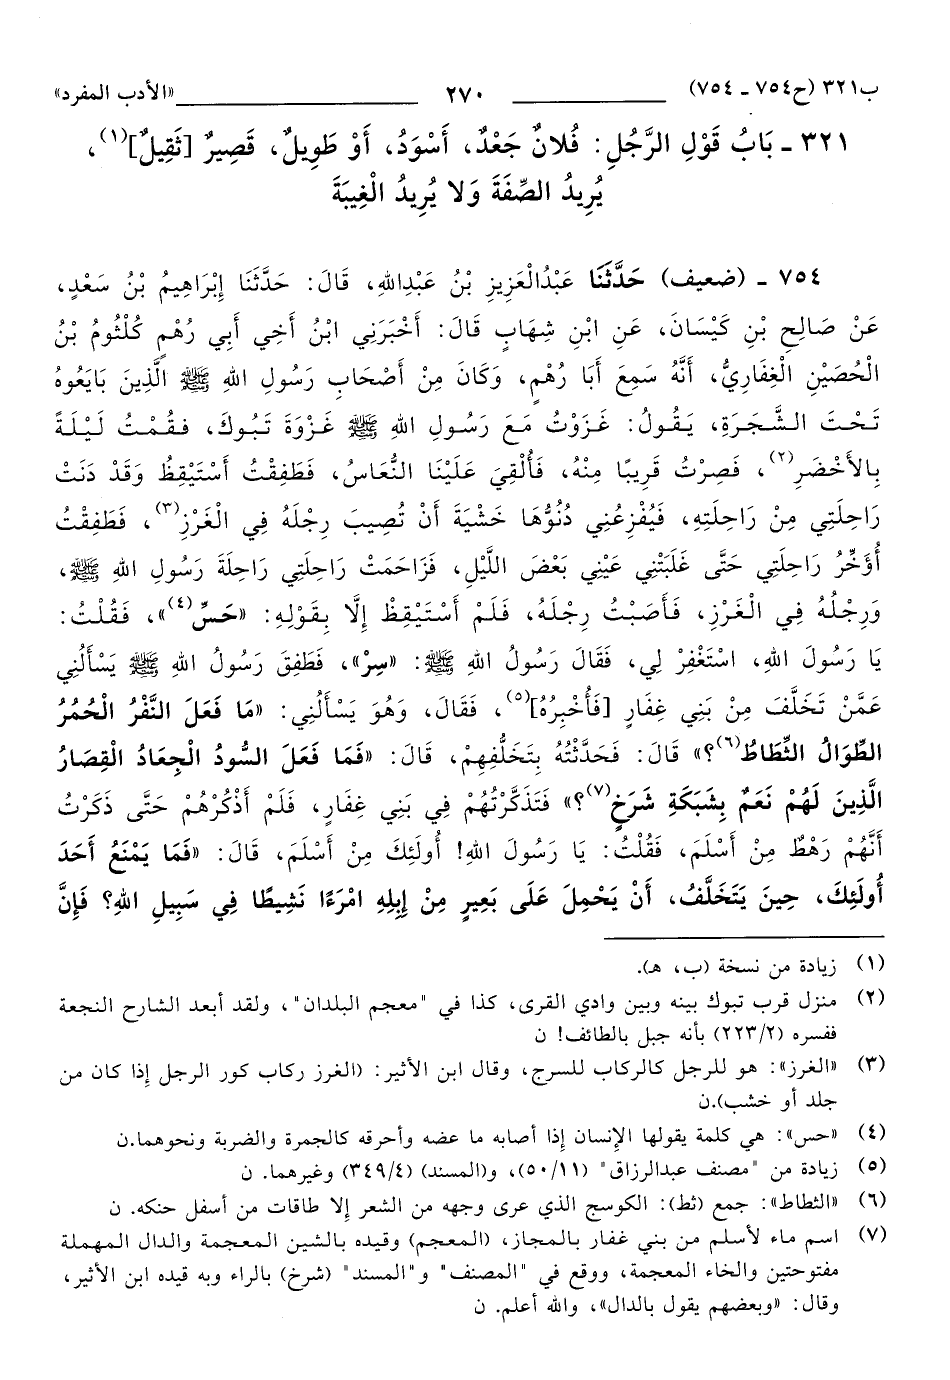 ب٣٢١ (ح٧٥٤ ـ ٧٥٤) ٢٧٠ «الأدب المفرد»
٣٢١ ـ بَابُ قَوْلِ الرَّجُلِ: فُلانٌ جَعْدٌ، أَسْوَدُ، أَوْ طَوِيلٌ، قَصِيرٌ [ثَقِيلٌ](١)،
يُرِيدُ الصِّفَةَ وَلا يُرِيدُ الْغِيبَةَ
٧٥٤ ـ (ضعيف) حَدَّثَنَا عَبْدُالْعَزِيزِ بْنُ عَبْدِاللهِ، قَالَ: حَدَّثَنَا إِبْرَاهِيمُ بْنُ سَعْدٍ،
عَنْ صَالِحِ بْنِ كَيْسَانَ، عَنِ ابْنِ شِهَابٍ قَالَ: أَخْبَرَنِي ابْنُ أَخِي أَبِي رُهْمٍ كُلْثُومُ بْنُ
الْحُصَيْنِ الْغِفَارِيُّ، أَنَّهُ سَمِعَ أَبَا رُهْمٍ، وَكَانَ مِنْ أَصْحَابِ رَسُولِ اللهِ ﷺ الَّذِينَ بَايَعُوهُ
تَحْتَ الشَّجَرَةِ، يَقُولُ: غَزَوْتُ مَعَ رَسُولِ اللهِ ﷺ غَزْوَةَ تَبُوكَ، فَقُمْتُ لَيْلَةً
بِالأَخْضَرِ(٢)، فَصِرْتُ قَرِيبًا مِنْهُ، فَأُلْقِيَ عَلَيْنَا النُّعَاسُ، فَطَفِقْتُ أَسْتَيْقِظُ وَقَدْ دَنَتْ
رَاحِلَتِي مِنْ رَاحِلَتِهِ، فَيُفْزِعُنِي دُنُوُّهَا خَشْيَةَ أَنْ تُصِيبَ رِجْلَهُ فِي الْغَرْزِ(٣)، فَطَفِقْتُ
أُؤَخِّرُ رَاحِلَتِي حَتَّى غَلَبَتْنِي عَيْنِي بَعْضَ اللَّيْلِ، فَزَاحَمَتْ رَاحِلَتِي رَاحِلَةَ رَسُولِ اللهِ ﷺ،
وَرِجْلُهُ فِي الْغَرْزِ، فَأَصَبْتُ رِجْلَهُ، فَلَمْ أَسْتَيْقِظْ إِلَّا بِقَوْلِهِ: «حَسِّ(٤)»، فَقُلْتُ:
يَا رَسُولَ اللهِ، اسْتَغْفِرْ لِي، فَقَالَ رَسُولُ اللهِ ﷺ: «سِرْ»، فَطَفِقَ رَسُولُ اللهِ ﷺ يَسْأَلُنِي
عَمَّنْ تَخَلَّفَ مِنْ بَنِي غِفَارٍ [فَأُخْبِرُهُ](٥)، فَقَالَ، وَهُوَ يَسْأَلُنِي: «مَا فَعَلَ النَّفْرُ الْحُمُرُ
الطِّوَالُ الثِّطَاطُ(٦)؟» قَالَ: فَحَدَّثْتُهُ بِتَخَلُّفِهِمْ، قَالَ: «فَمَا فَعَلَ السُّودُ الْجِعَادُ الْقِصَارُ
الَّذِينَ لَهُمْ نَعَمٌ بِشَبَكَةِ شَرَخٍ(٧)؟» فَتَذَكَّرْتُهُمْ فِي بَنِي غِفَارٍ، فَلَمْ أَذْكُرْهُمْ حَتَّى ذَكَرْتُ
أَنَّهُمْ رَهْطٌ مِنْ أَسْلَمَ، فَقُلْتُ: يَا رَسُولَ اللهِ! أُولَئِكَ مِنْ أَسْلَمَ، قَالَ: «فَمَا يَمْنَعُ أَحَدَ
أُولَئِكَ، حِينَ يَتَخَلَّفُ، أَنْ يَحْمِلَ عَلَى بَعِيرٍ مِنْ إِبِلِهِ امْرَءًا نَشِيطًا فِي سَبِيلِ اللهِ؟ فَإِنَّ
(١) زيادة من نسخة (ب، هـ).
(٢) منزل قرب تبوك بينه وبين وادي القرى، كذا في "معجم البلدان"، ولقد أبعد الشارح النجعة
ففسره (٢/٢٢٣) بأنه جبل بالطائف! ن
(٣) «الغرز»: هو للرجل كالركاب للسرج، وقال ابن الأثير: (الغرز ركاب كور الرجل إذا كان من
جلد أو خشب).ن
(٤) «حس»: هي كلمة يقولها الإنسان إذا أصابه ما عضه وأحرقه كالجمرة والضربة ونحوهما.ن
(٥) زيادة من "مصنف عبدالرزاق" (١١/٥٠)، و(المسند) (٤/٣٤٩) وغيرهما. ن
(٦) «الثطاط»: جمع (ثط): الكوسج الذي عرى وجهه من الشعر إلا طاقات من أسفل حنكه. ن
(٧) اسم ماء لأسلم من بني غفار بالمجاز، (المعجم) وقيده بالشين المعجمة والدال المهملة
مفتوحتين والخاء المعجمة، ووقع في "المصنف" و"المسند" (شرخ) بالراء وبه قيده ابن الأثير،
وقال: «وبعضهم يقول بالدال»، والله أعلم. ن